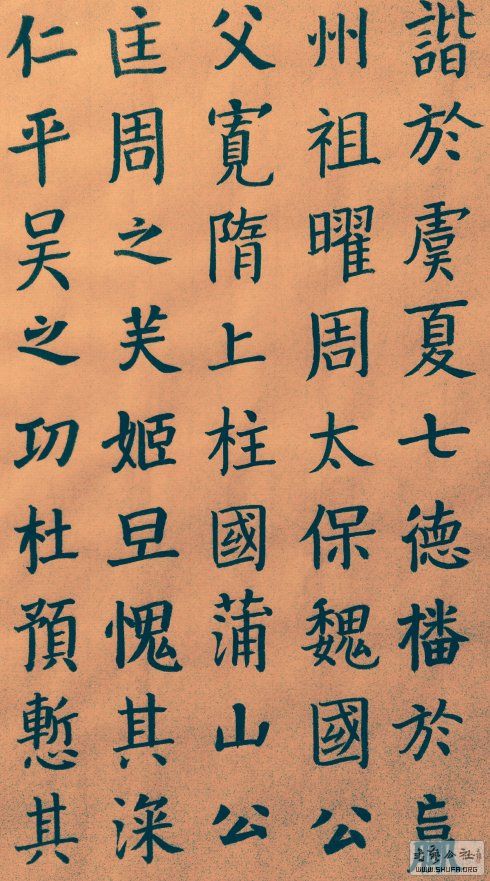 諧於虞夏七德播於
州祖曜周太保魏國公
父寬隋上柱國蒲山公
匡周之美姬旦愧其深
仁平吴之功杜預慙其
WWW.SHUFA.ORG